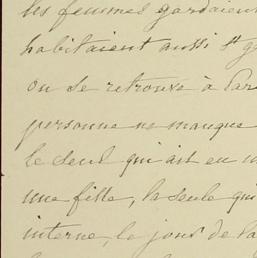 les femmes gardaient
habitaient aussi St g
on se retrouve à Par
personne ne manque
le seul qui ait eu u
une fille, la seule qui
interne, le jour de Pa